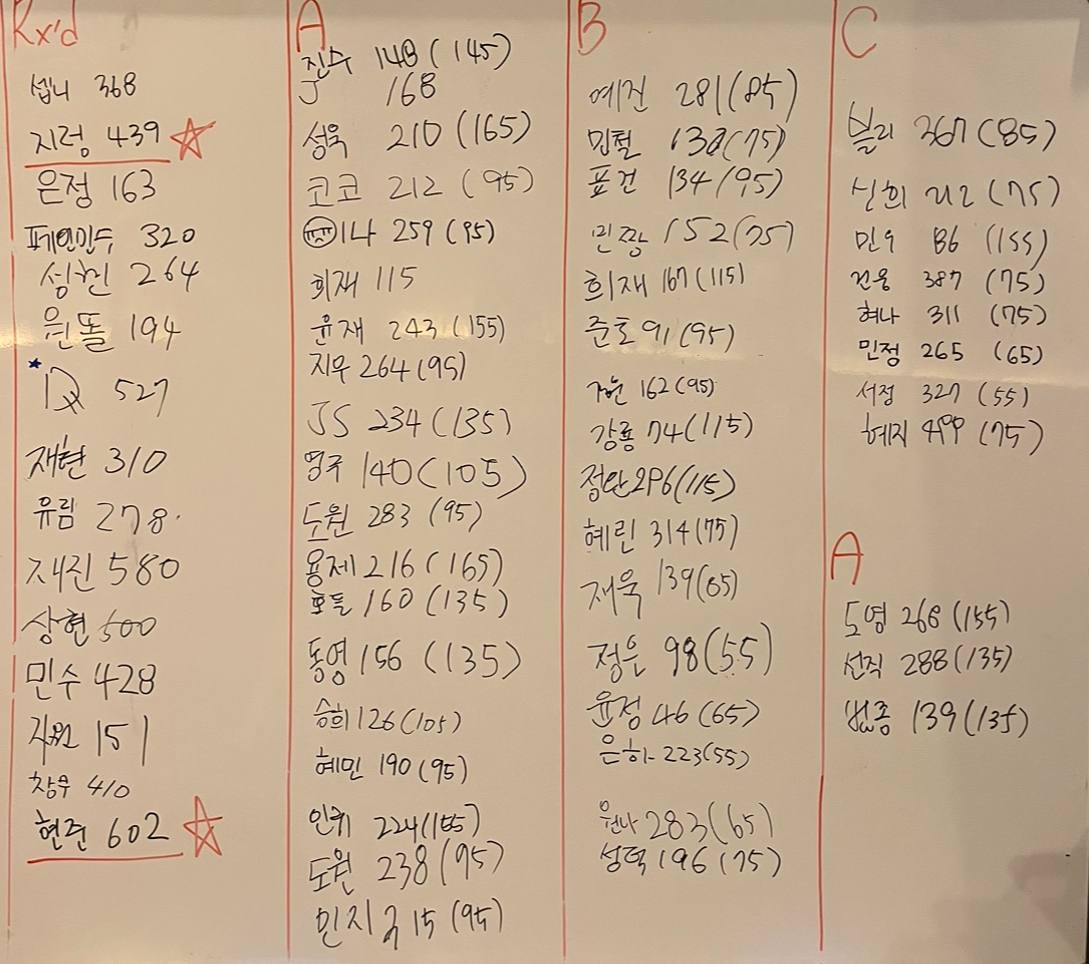 Rx'd
셉니 368
지정 439
은정 163
페인민수 320
성헌 264
원똘 194
IQ 527
재현 310
유림 278
재진 580
상현 500
민수 428
지원 151
창우 410
현준 602
A
진수 148 (145)
J 168
성욱 210 (165)
코코 212 (95)
이나 259 (95)
희재 115
윤재 243 (155)
지우 264 (95)
JS 234 (135)
영주 140 (105)
도원 283 (95)
용제 216 (165)
호들 160 (135)
동영 156 (135)
승희 126 (105)
혜민 190 (95)
인퀴 224
도원 238 (95)
민지 215 (95)
B
예진 281 (85)
민철 138 (75)
표건 134 (95)
민짱 152 (75)
희재 167 (115)
준호 91 (95)
162 (95)
강룡 74 (115)
정란 296 (115)
혜린 314 (75)
재욱 139 (65)
정은 98 (55)
윤정 46 (65)
은하 223 (55)
원나 283 (65)
성덕 196 (75)
C
블리 367 (85)
신희 212 (75)
민우 86 (155)
건웅 387 (75)
혀나 311 (75)
민정 265 (65)
서정 327 (55)
혜지 499 (75)
A
도영 268 (155)
선직 288 (135)
범종 139 (135)